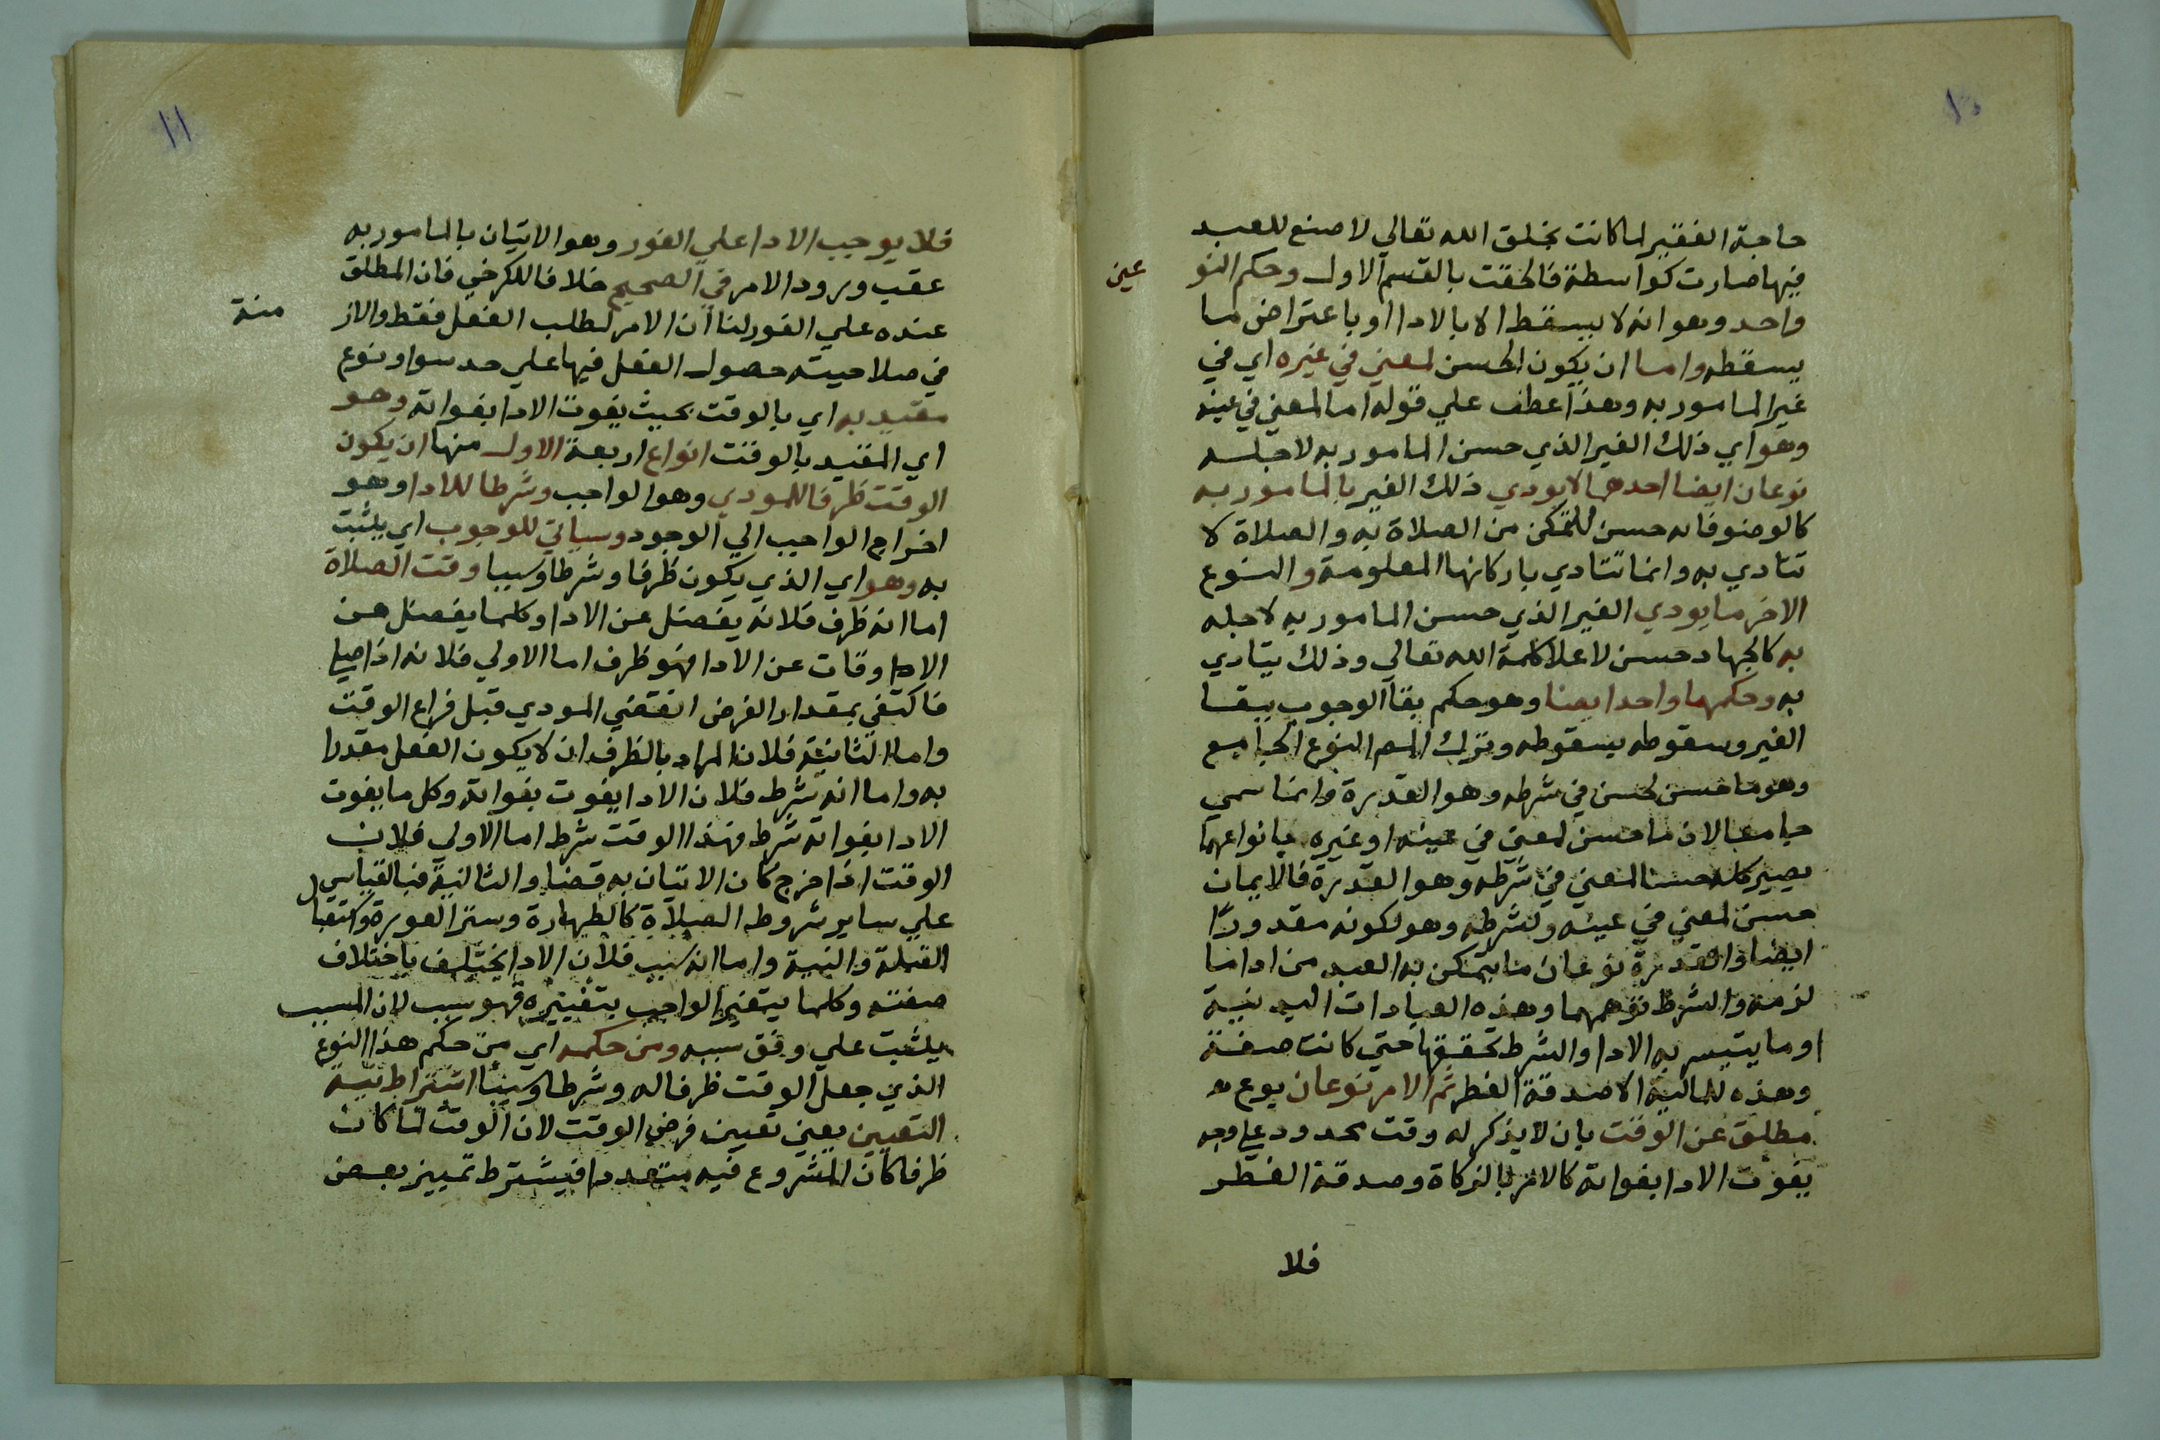 ١٠
حاجة الفقير لما كانت بخلق الله تعالي لا صنع للعبد
فيها صارت كواسطة فالحقت بالقسم الاول وحكم النو
عين
واحد وهو انه لا يسقط الا بالادا او باعتراض ما
يسقطه واما ان يكون الحسن لمعني في غيره اي في
غير المامور به وهذا عطف علي قوله اما لمعني في عينه
وهو اي ذلك الغير الذي حسن المامور به لاجله
نوعان ايضا احدهما لا يودي ذلك الغير بالمامور به
كالوضو فانه حسن للتمكن من الصلاة به والصلاة لا
تتادي به وانما تتادي باركانها المعلومة والنوع
الاخر ما يودي الغير الذي حسن المامور به لاجله
به كالجهاد حسن لاعلا كلمة الله تعالي وذلك يتادي
به وحكمهما واحد ايضا وهو حكم بقا الوجوب ببقا
الغير وسقوطه بسقوطه وترك المص النوع الجامع
وهو ما حسن لحسن في شرطه وهو القدرة وانما سمي
جامعا لان ما حسن لمعني في عينه او غيره بانواعهما
يصير كله حسنا لمعني في شرطه وهو القدرة فالايمان
حسن لمعني في عينه ولشرطه وهو لكونه مقدورا
ايضا والقدرة نوعان ما يتمكن به العبد من ادا ما
لزمه والشرط توهمها وهذه العبادات البدنية
او ما يتيسر به الادا والشرط تحققها حتي كانت صفة
وهذه للمالية الا صدقة الفطر ثم الامر نوعان نوع
مطلق عن الوقت بان لا يذكر له وقت محدود علي وجه
يفوت الادا بفواته كالامر بالزكاة وصدقة الفطر
فلا
١١
فلا يوجب الادا علي الفور وهو الاتيان بالمامور به
عقب ورود الامر في الصحيح خلافا للكرخي فان المطلق
عنده علي الفور لنا ان الامر لطلب الفعل فقط والاز
منة
في صلاحيته حصول الفعل فيها علي حد سوا ونوع
مقيد به اي بالوقت بحيث يفوت الادا بفواته وهو
اي المقيد بالوقت انواع اربعة الاول منها ان يكون
الوقت ظرفا للمودي وهو الواجب وشرطا للادا وهو
اخراج الواجب الي الوجود وسياتي للوجوب اي يثبت
به وهو اي الذي يكون ظرفا وشرطا وسببا وقت الصلاة
اما انه ظرف فلانه يفضل عن الادا وكلما يفضل عن
الادا وقات عن الادا فهو ظرف اما الاولي فلانه اذا صلي
فاكتفي بمقدار الفرض انقضي المودي قبل فراغ الوقت
واما الثانية فلان المراد بالظرف ان لا يكون الفعل مقدرا
به واما انه شرط فلان الادا يفوت بفواته وكل ما يفوت
الادا بفواته شرط فهذا الوقت شرط اما الاولي فلان
الوقت اذا خرج كان الاتيان به قضا والثانية فبالقياس
علي ساير شروط الصلاة كالطهارة وستر العورة واستقبال
القبلة والنية واما انه سبب فلان الادا يختلف باختلاف
صفته وكلما يتغير الواجب بتغييره فهو سبب لان المسبب
يثبت علي وفق سببه ومن حكمه اي من حكم هذا النوع
الذي جعل الوقت ظرفا له وشرطا وسببا اشتراط نية
التعيين يعني تعيين فرض الوقت لان الوقت لما كان
ظرفا كان المشروع فيه متعددا فيشترط تمييز بعض